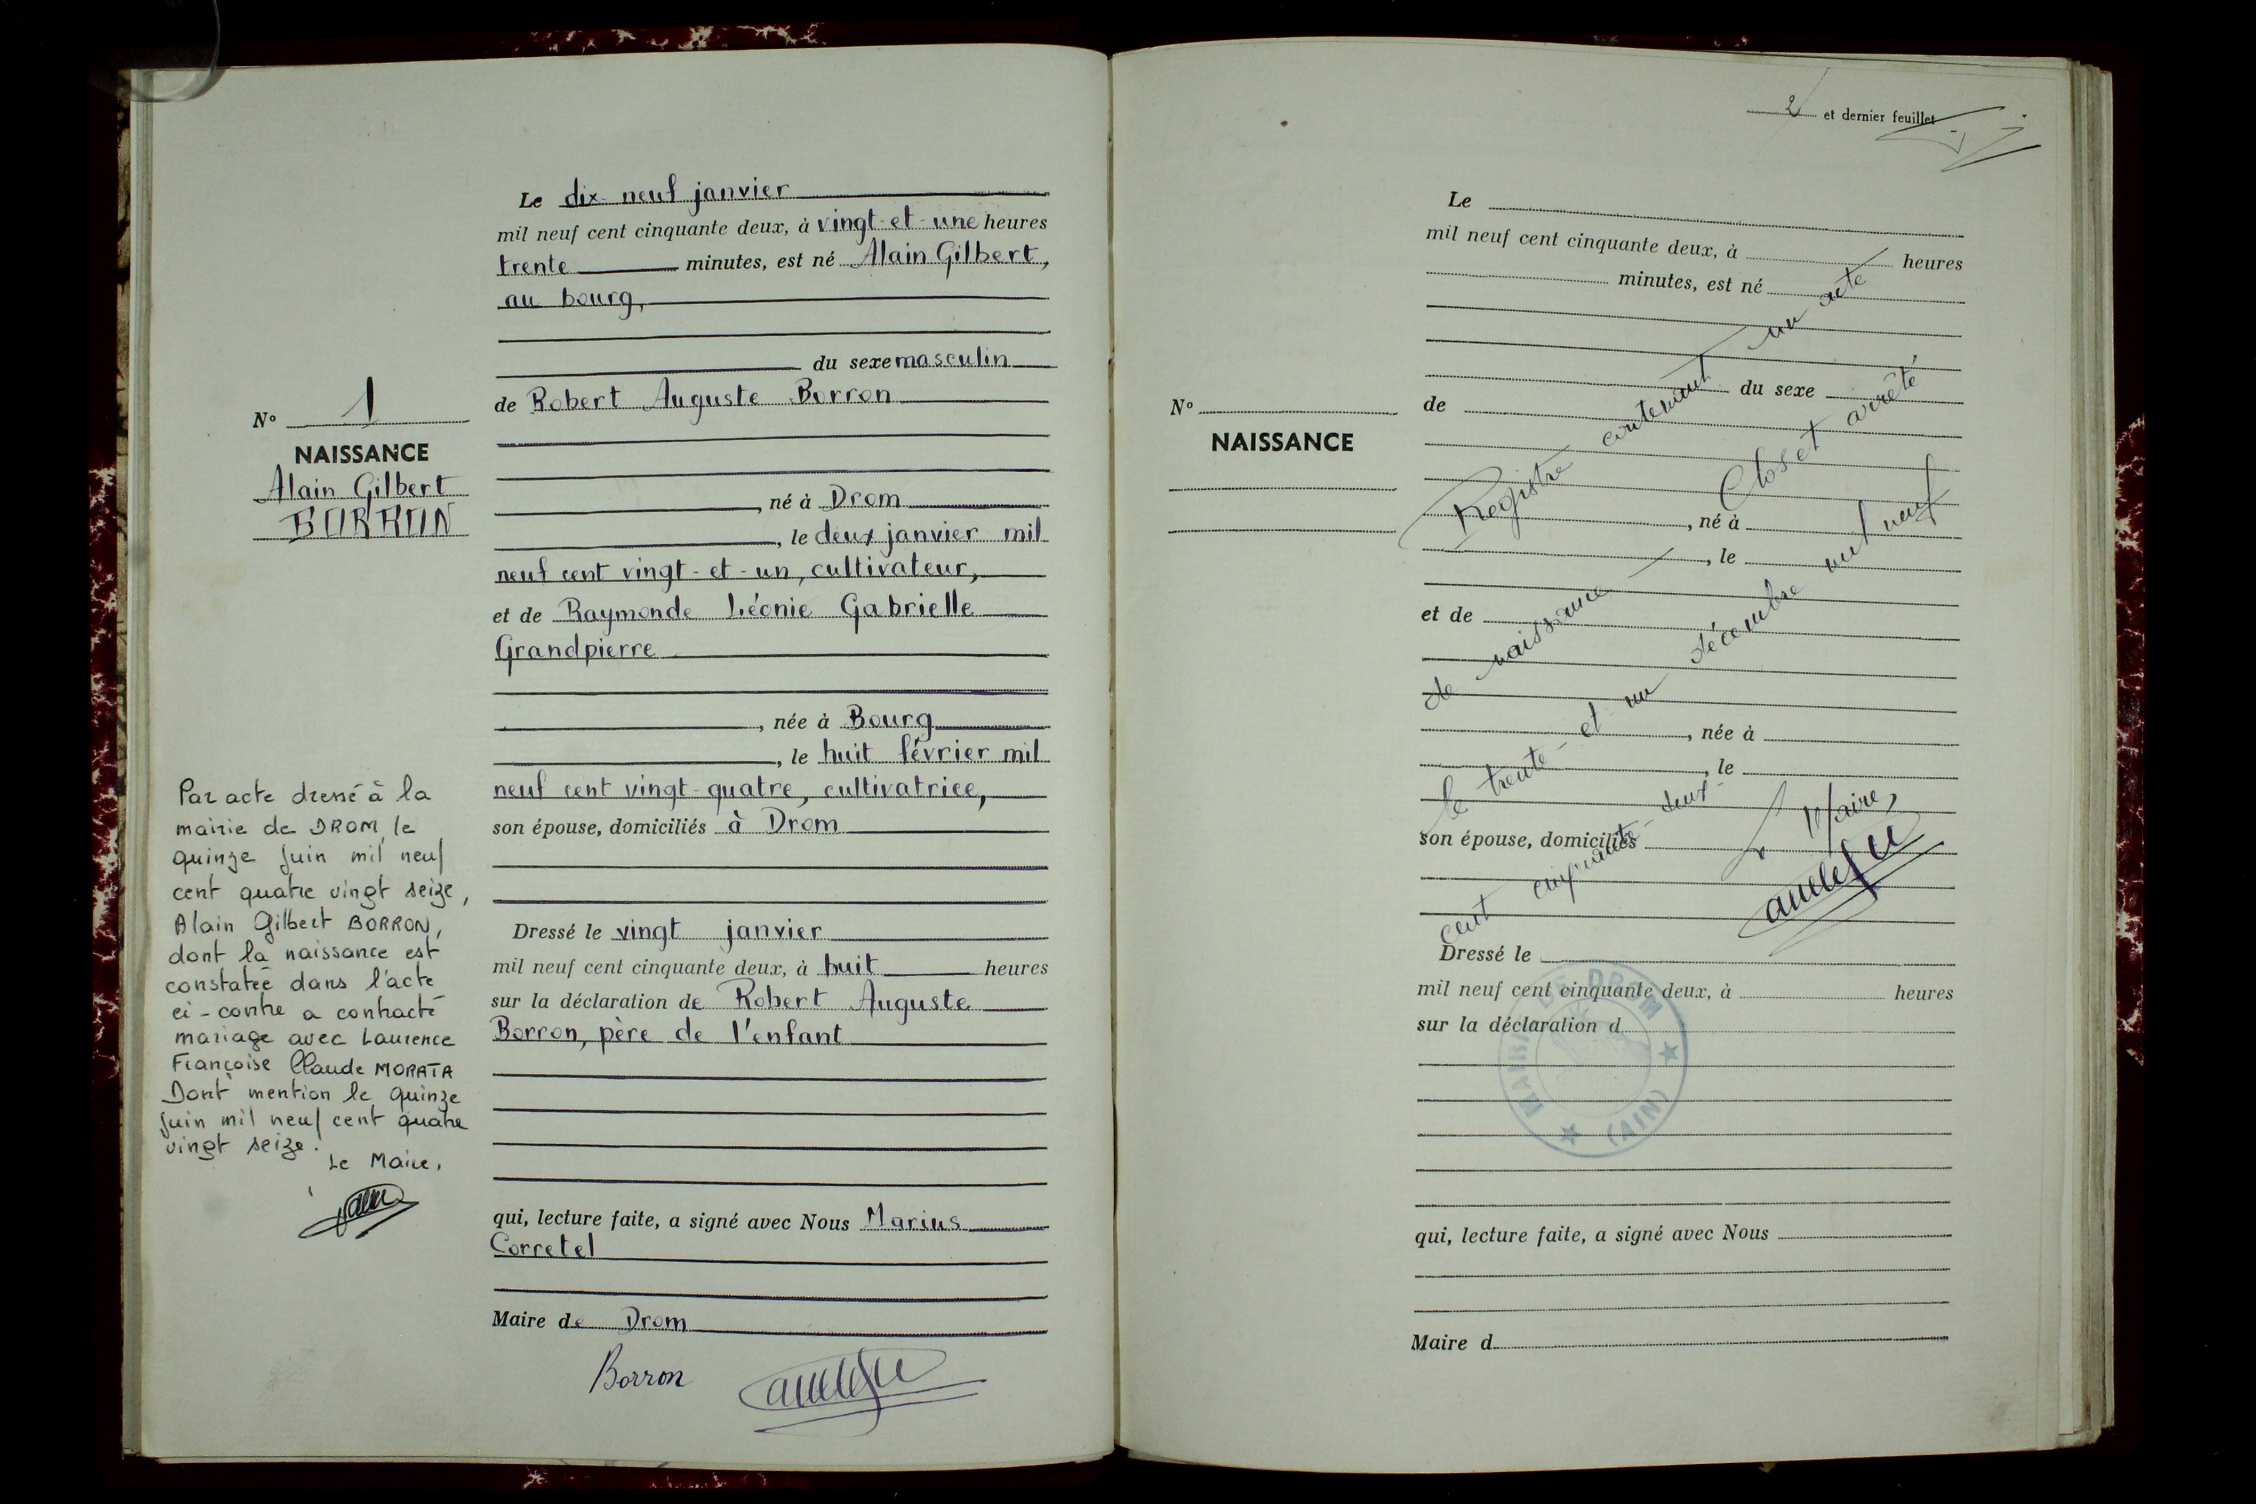 Le dix-neuf janvier
mil neuf cent cinquante deux, à vingt-et-une heures
trente minutes, est né Alain Gilbert,
au bourg,
du sexe masculin
de Robert Auguste Borron
né à Drom
, le deux janvier mil
neuf cent vingt-et-un, cultivateur,
et de Raymonde Léonie Gabrielle
Grandpierre
, née à Bourg
, le huit février mil
neuf cent vingt-quatre, cultivatrice,
son épouse, domiciliés à Drom
Dressé le vingt janvier
mil neuf cent cinquante deux, à huit heures
sur la déclaration de Robert Auguste
Borron, père de l'enfant
qui, lecture faite, a signé avec Nous Marius
Corretel
Maire de Drom
Borron
No 1
NAISSANCE
Alain Gilbert
BORRON
Par acte dressé à la
mairie de DROM, le
quinze juin mil neuf
cent quatre vingt seize,
Alain Gilbert BORRON,
dont la naissance est
constatée dans l'acte
ci-contre a contracté
mariage avec Laurence
Françoise Claude MORATA
Dont mention le quinze
juin mil neuf cent quatre
vingt seize.
Le Maire,
2 et dernier feuillet
No
NAISSANCE
Le
mil neuf cent cinquante deux, à heures
minutes, est né
du sexe
de
, né à
, le
et de
, née à
, le
son épouse, domiciliés
Dressé le
mil neuf cent cinquante deux, à heures
sur la déclaration d
qui, lecture faite, a signé avec Nous
Maire d
Registre contenant un acte
de naissance Clos et arrêté
le trente-et un décembre mil neuf
cent cinquante-deux.
Le Maire,
MAIRIE DE DROM
(AIN)